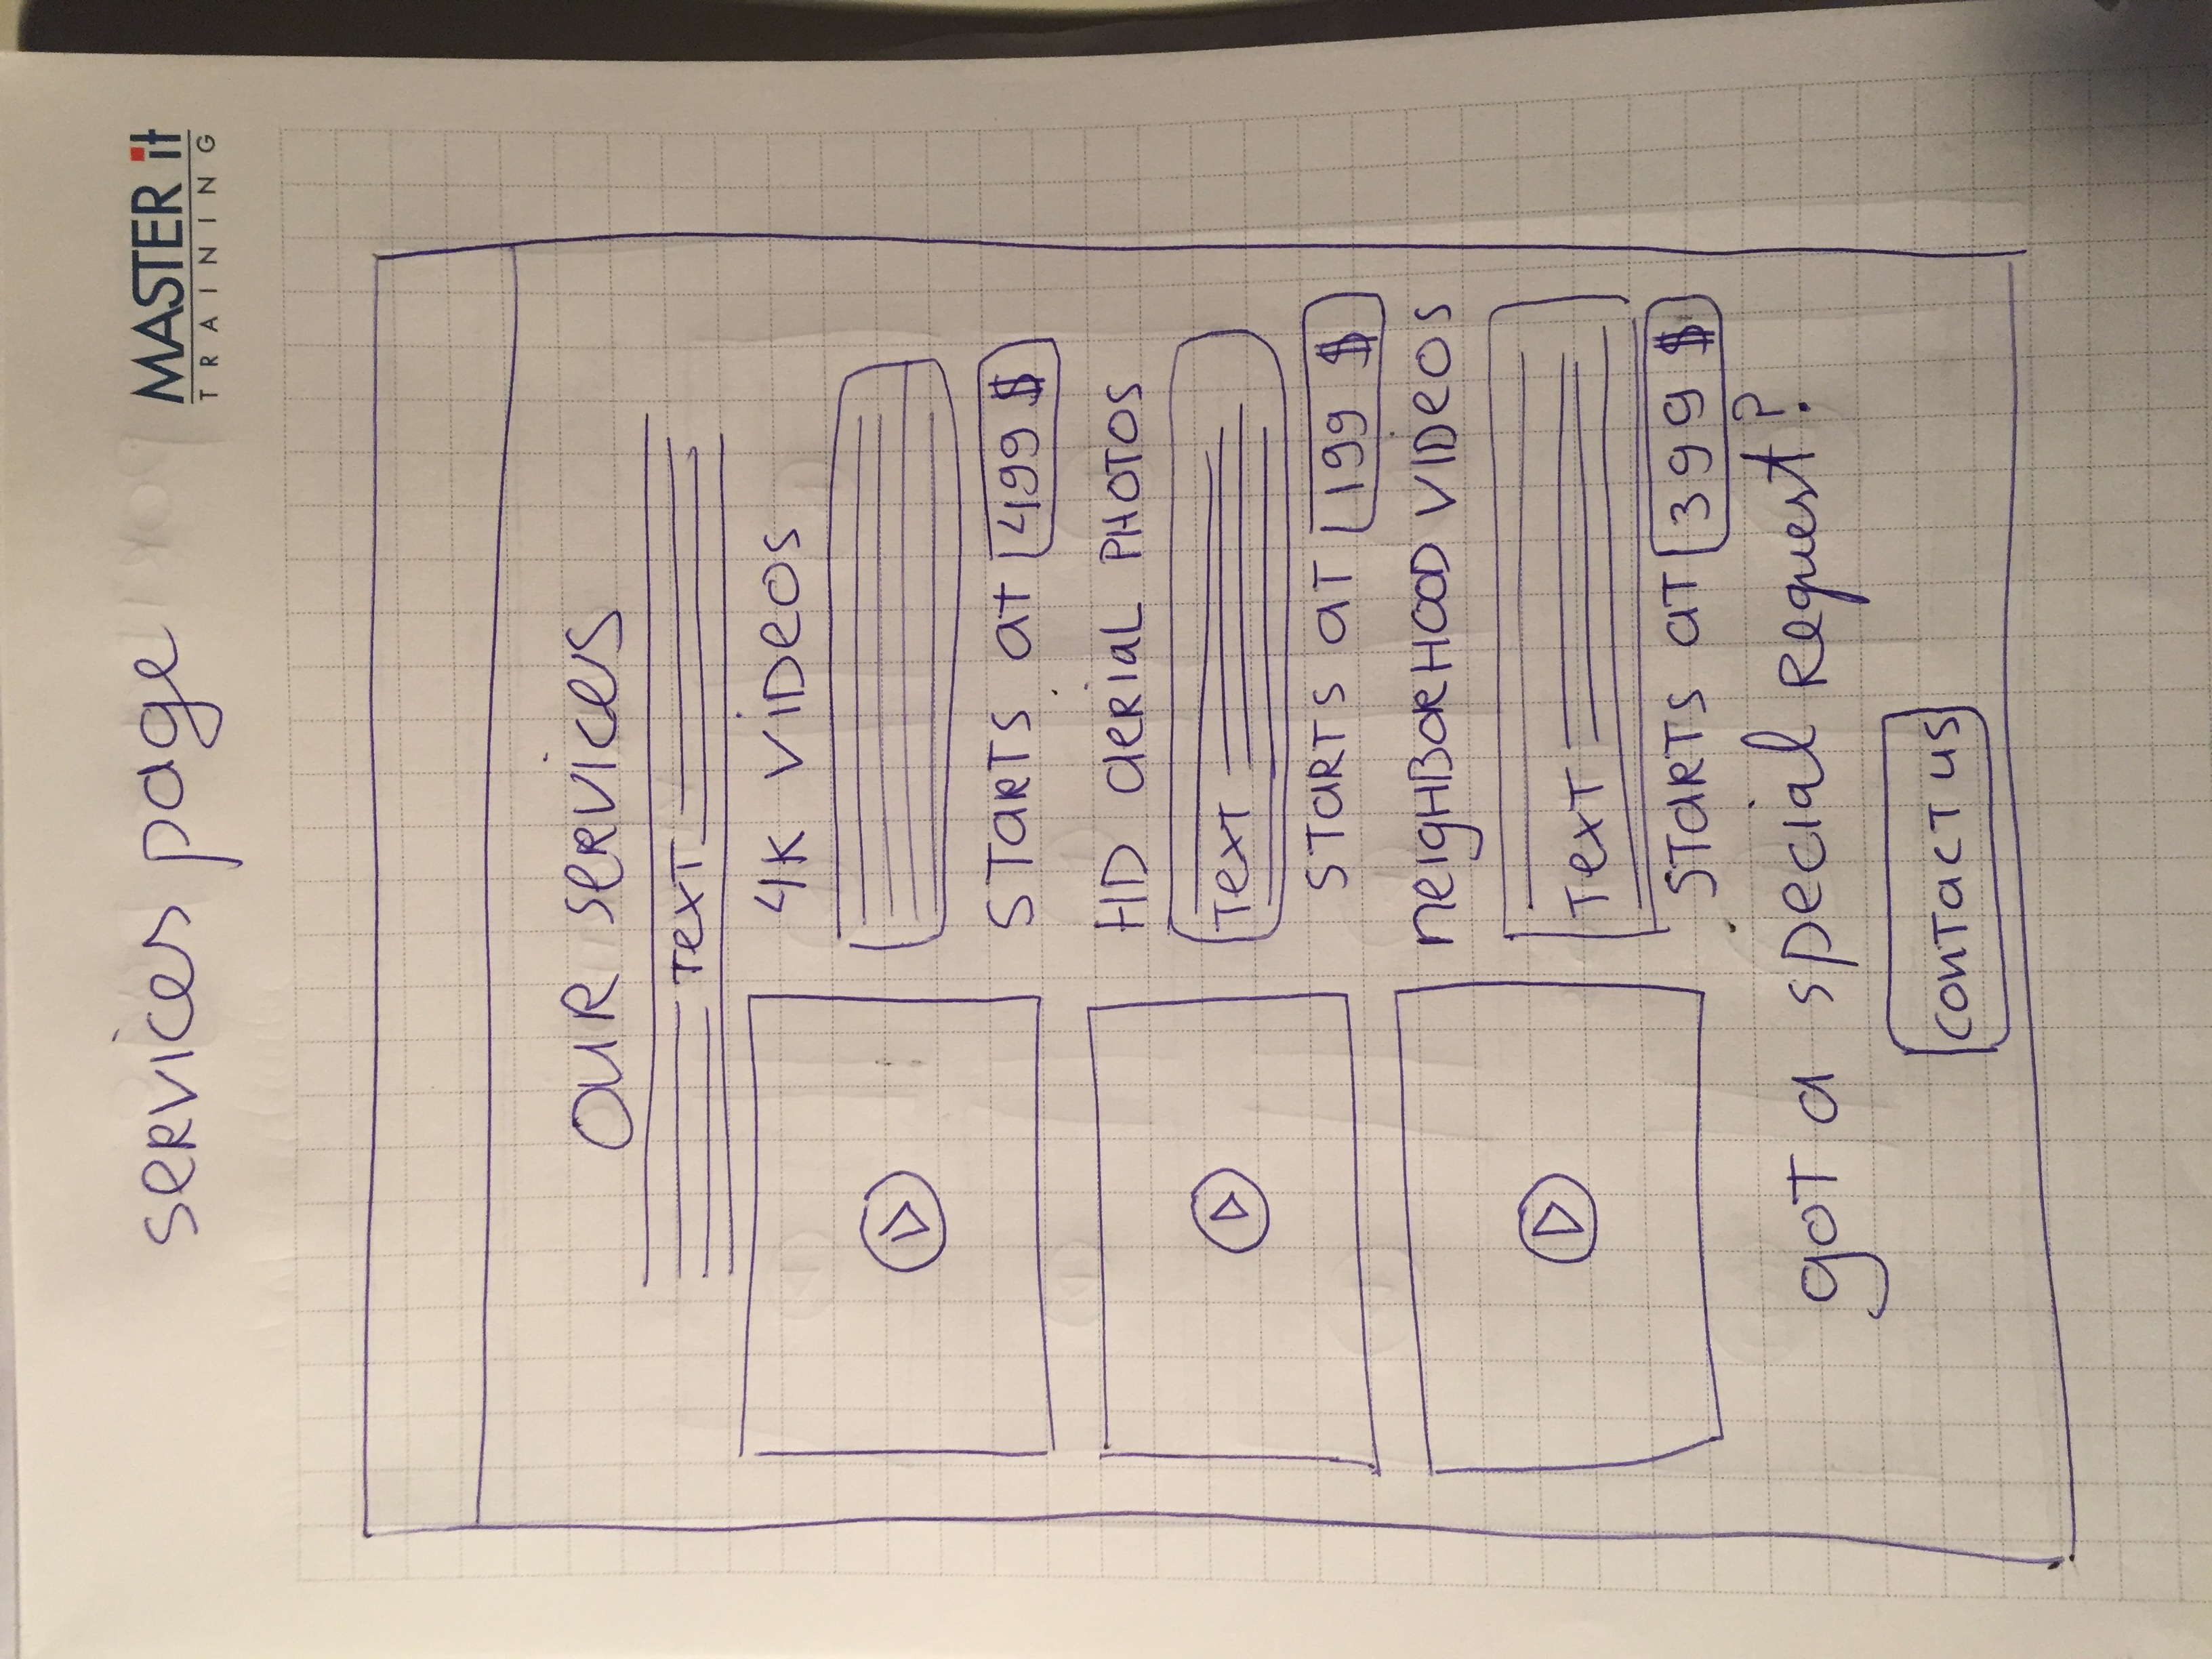 MASTER it
TRAINING
services page
OUR services
Text
4K VIDEOS
STARTS at 499 $
HD aerial PHOTOS
Text
STARTS at 199 $
neigHBORHOOD VIDEOS
Text
STARTS at 399 $
got a special Request?
contact us